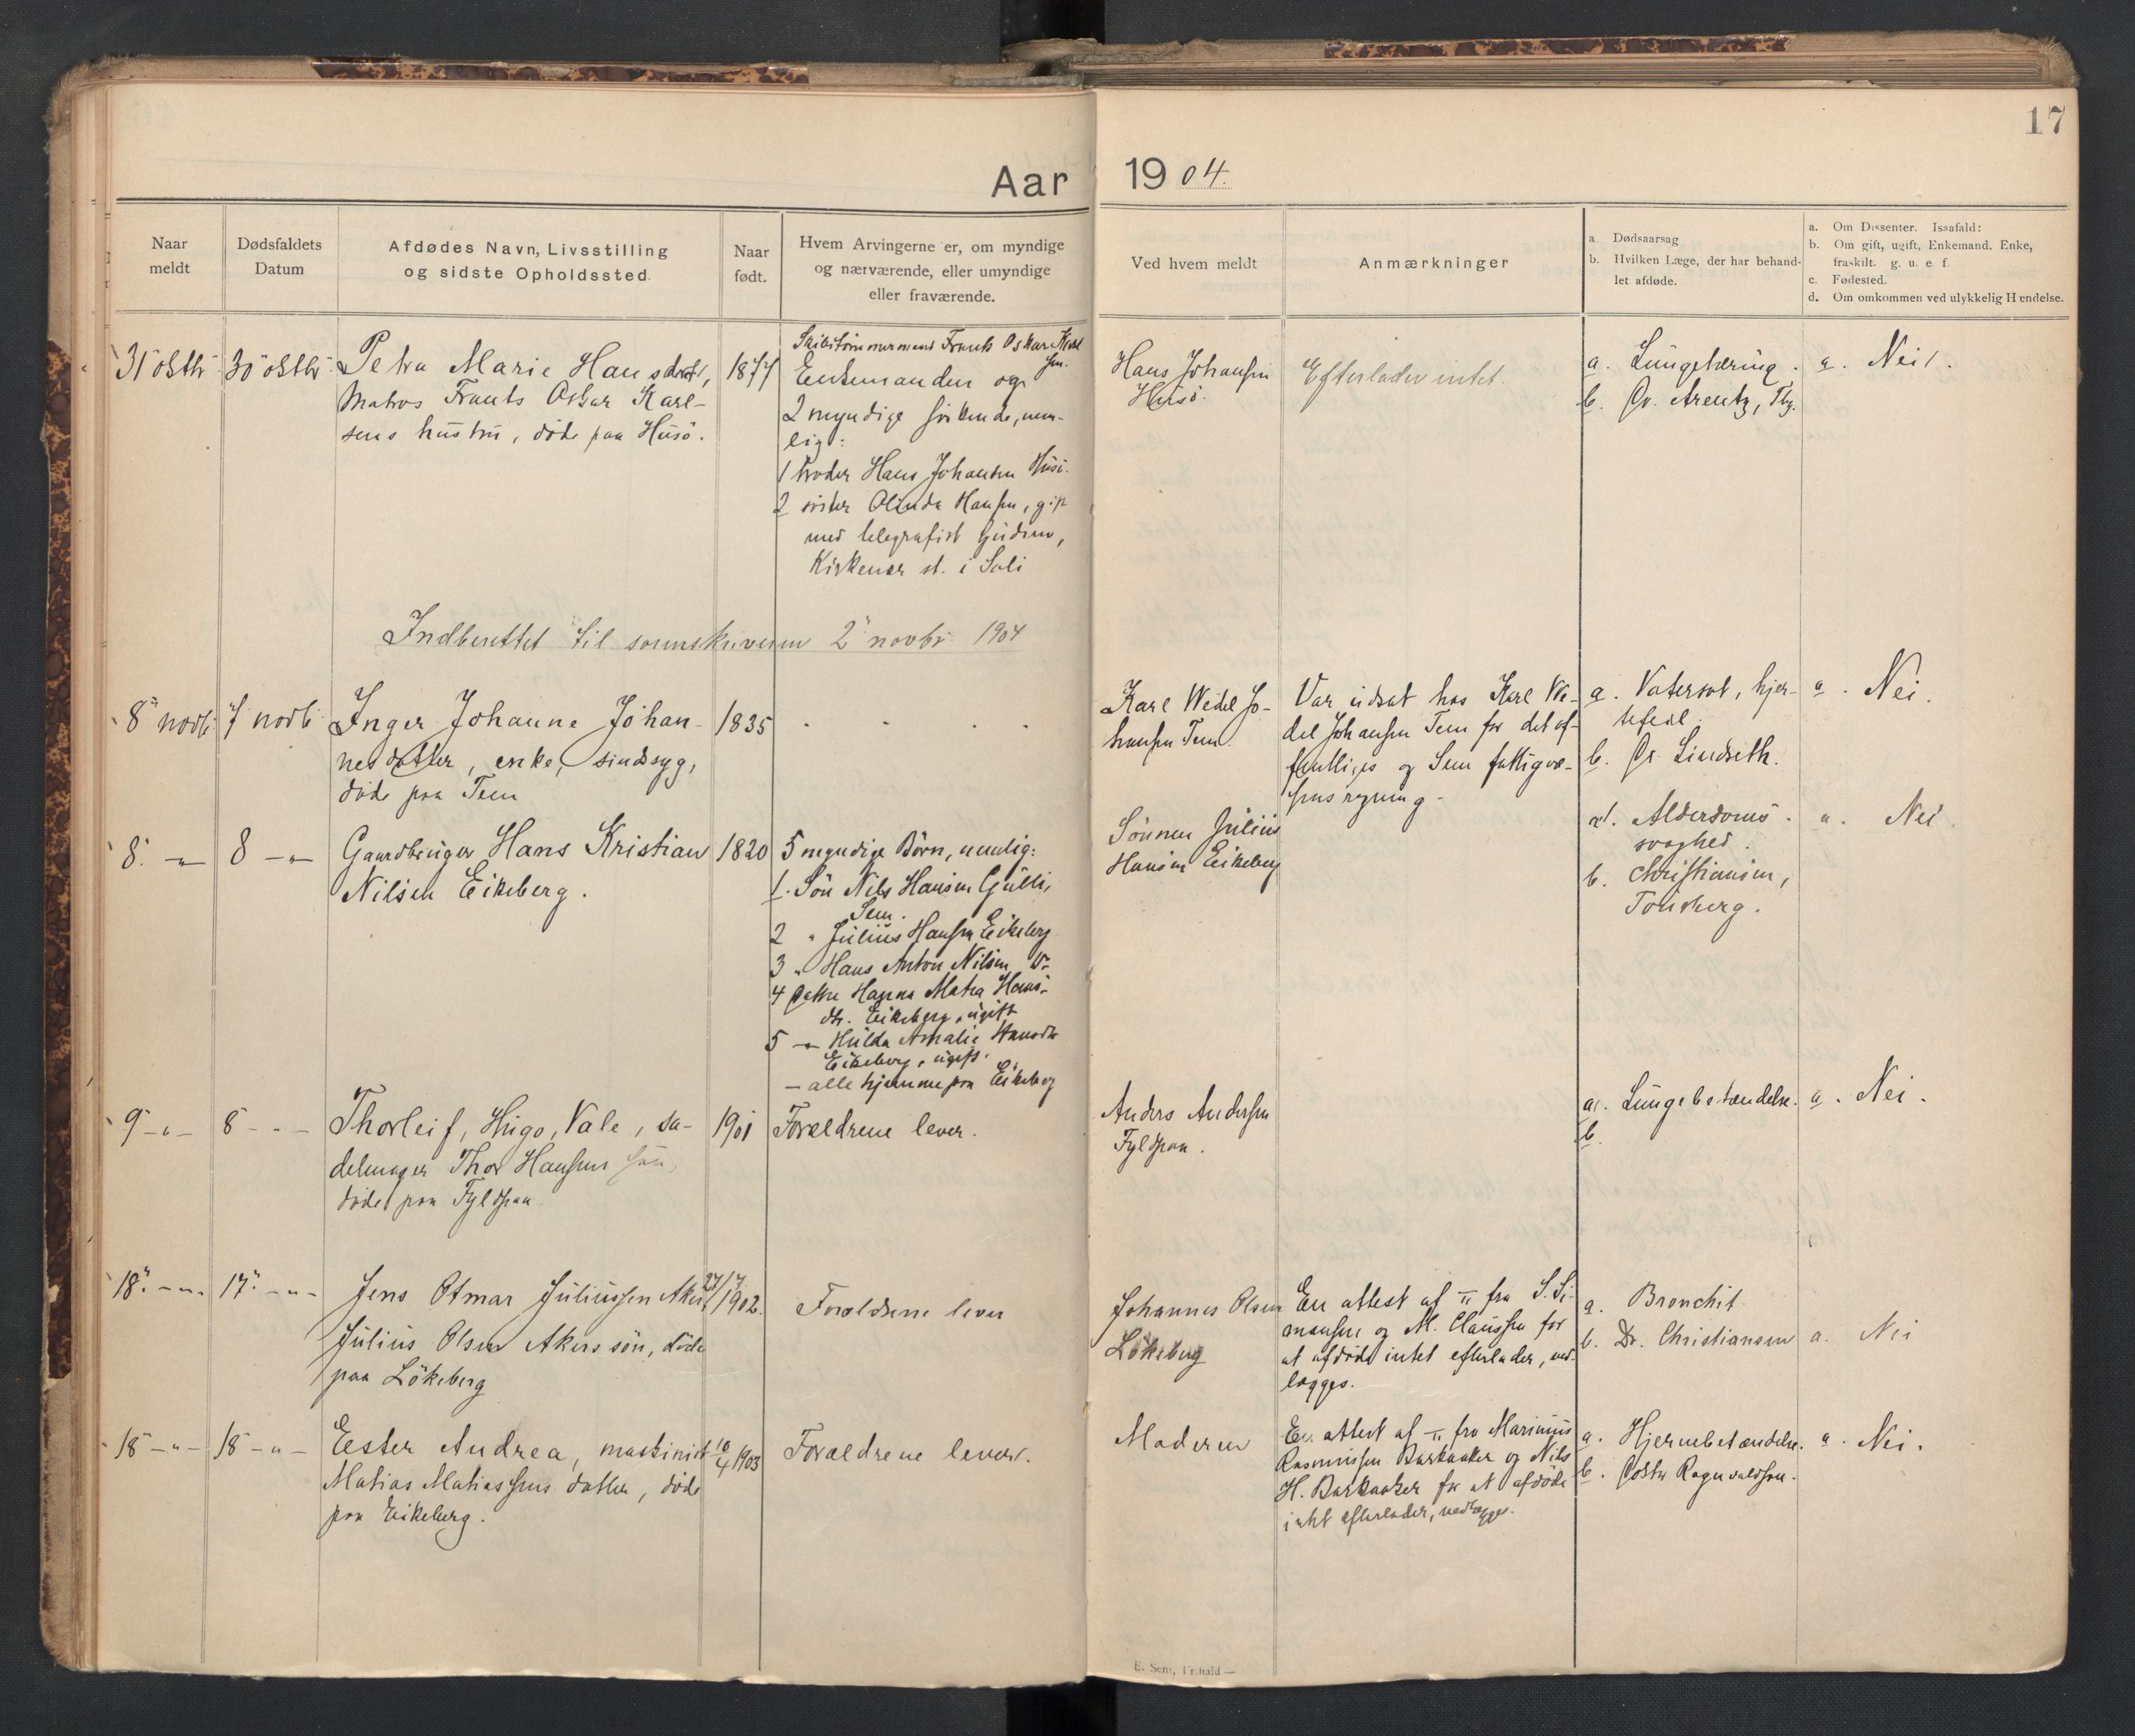 17
Aar 1904.
Naar meldt
Dødsfaldets Datum
Afdødes Navn, Livsstilling og sidste Opholdssted.
Naar født.
Hvem Arvingerne er, om myndige og nærværende, eller umyndige eller fraværende.
Ved hvem meldt
Anmærkninger
a. Dødsaarsag
b. Hvilken Læge, der har behandlet afdøde.
a. Om Dissenter. Isaafald:
b. Om gift, ugift, Enkemand, Enke, fraskilt. g. u. e. f.
c. Fødested.
d. Om omkommen ved ulykkelig Hendelse.
31 oktbr 30 oktbr Petra Marie Hansdatr,
Matros Frants Oskar Karl-
sens hustru, døde paa Husö.
1877
Skibstömmermand Frants Oskar Karl
sen.
Enkemanden og
2 myndige söskende, nem-
lig:
1 broder Hans Johansen Husö.
2 söster Olinda Hansen, gift
med telegrafist
Kirkenær st. i Solö
Hans Johansen
Husö.
Efterlader intet.
a. Lungetæring.
b. Dr. Arentz, Tbg.
a. Nei.
Indberettet til sorenskriveren 2 novbr 1904
8 novbr 7 novbr Inger Johanne Johan-
nesdatter, enke, sindssyg,
döde paa Tem
1835
Karl Wedel Jo-
hansen Tem.
Var udsat hos Karl We-
del Johansen Tem for det of-
fentliges og Sem fattigvæ-
sens regning.
a. Vatersot, hjer-
tefeil.
b. Dr. Lindseth.
a. Nei.
8. -"- 8 -"- Gaardbruger Hans Kristian
Nilsen Eikeberg.
1820
5 myndige Börn, nemlig:
1. Sön Nils Hansen Gulli,
Sem.
2 " Julius Hansen Eikeberg
3 " Hans Anton Nilsen
4 Datter Hanna Matea Hans-
dtr. Eikeberg, ugift
5 -"- Hulda Amalie Hansdtr
Eikeberg, ugift.
- alle hjemme paa Eikeberg
Sönnen Julius
Hansen Eikeberg
a. Alderdoms-
svaghed.
b. Christiansen,
Tönsberg.
a. Nei
9 -"- 8 - - - Thorleif, Hugo, Vale, sa-
delmager Thor Hansens sön,
döde paa Fyldpaa.
1901
Forældrene lever.
Anders Andersen
Fyldpaa.
a. Lungebetændelse.
b.
a. Nei.
18. -"- 17. -"- Jens Otmar Juliussen Aker,
Julius Olsen Akers sön, döde
paa Lökeberg
27/7 1902.
Forældrene lever
Johannes Olsen
Lökeberg
En attest af -"- fra S. Si-
monsen og M. Claussen for
at afdöde intet efterlader, ved-
lægges.
a. Bronchit
b. Dr. Christiansen
a. Nei
18 -"- 18 -"- Eester Andrea, maskinist
Matias Matiassens datter, döde
paa Eikeberg.
10/4 1903
Forældrene lever.
Moderen
En attest af -"- fra Marinius
Rasmussen Barkaaker og Nils
H. Barkaaker for at afdöde
intet efterlader, vedlægges.
a. Hjernebetændelse.
b. Doktor Ragnvaldsen.
a. Nei.